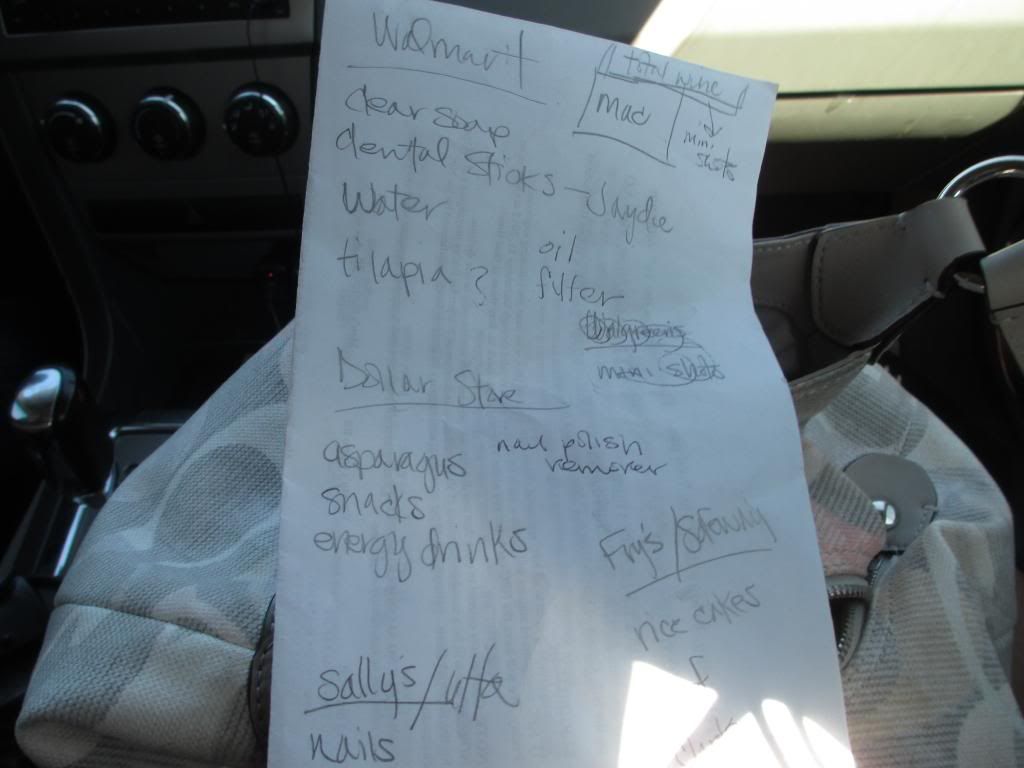 Walmart
total wine
Mac
mini
shots
clear soap
dental sticks - Jaydie
Water
oil
tilapia ?
filter
mini shots
Dollar Store
asparagus
nail polish
remover
snacks
energy drinks
Fry's/Safeway
rice cakes
sally's/ulta
nails